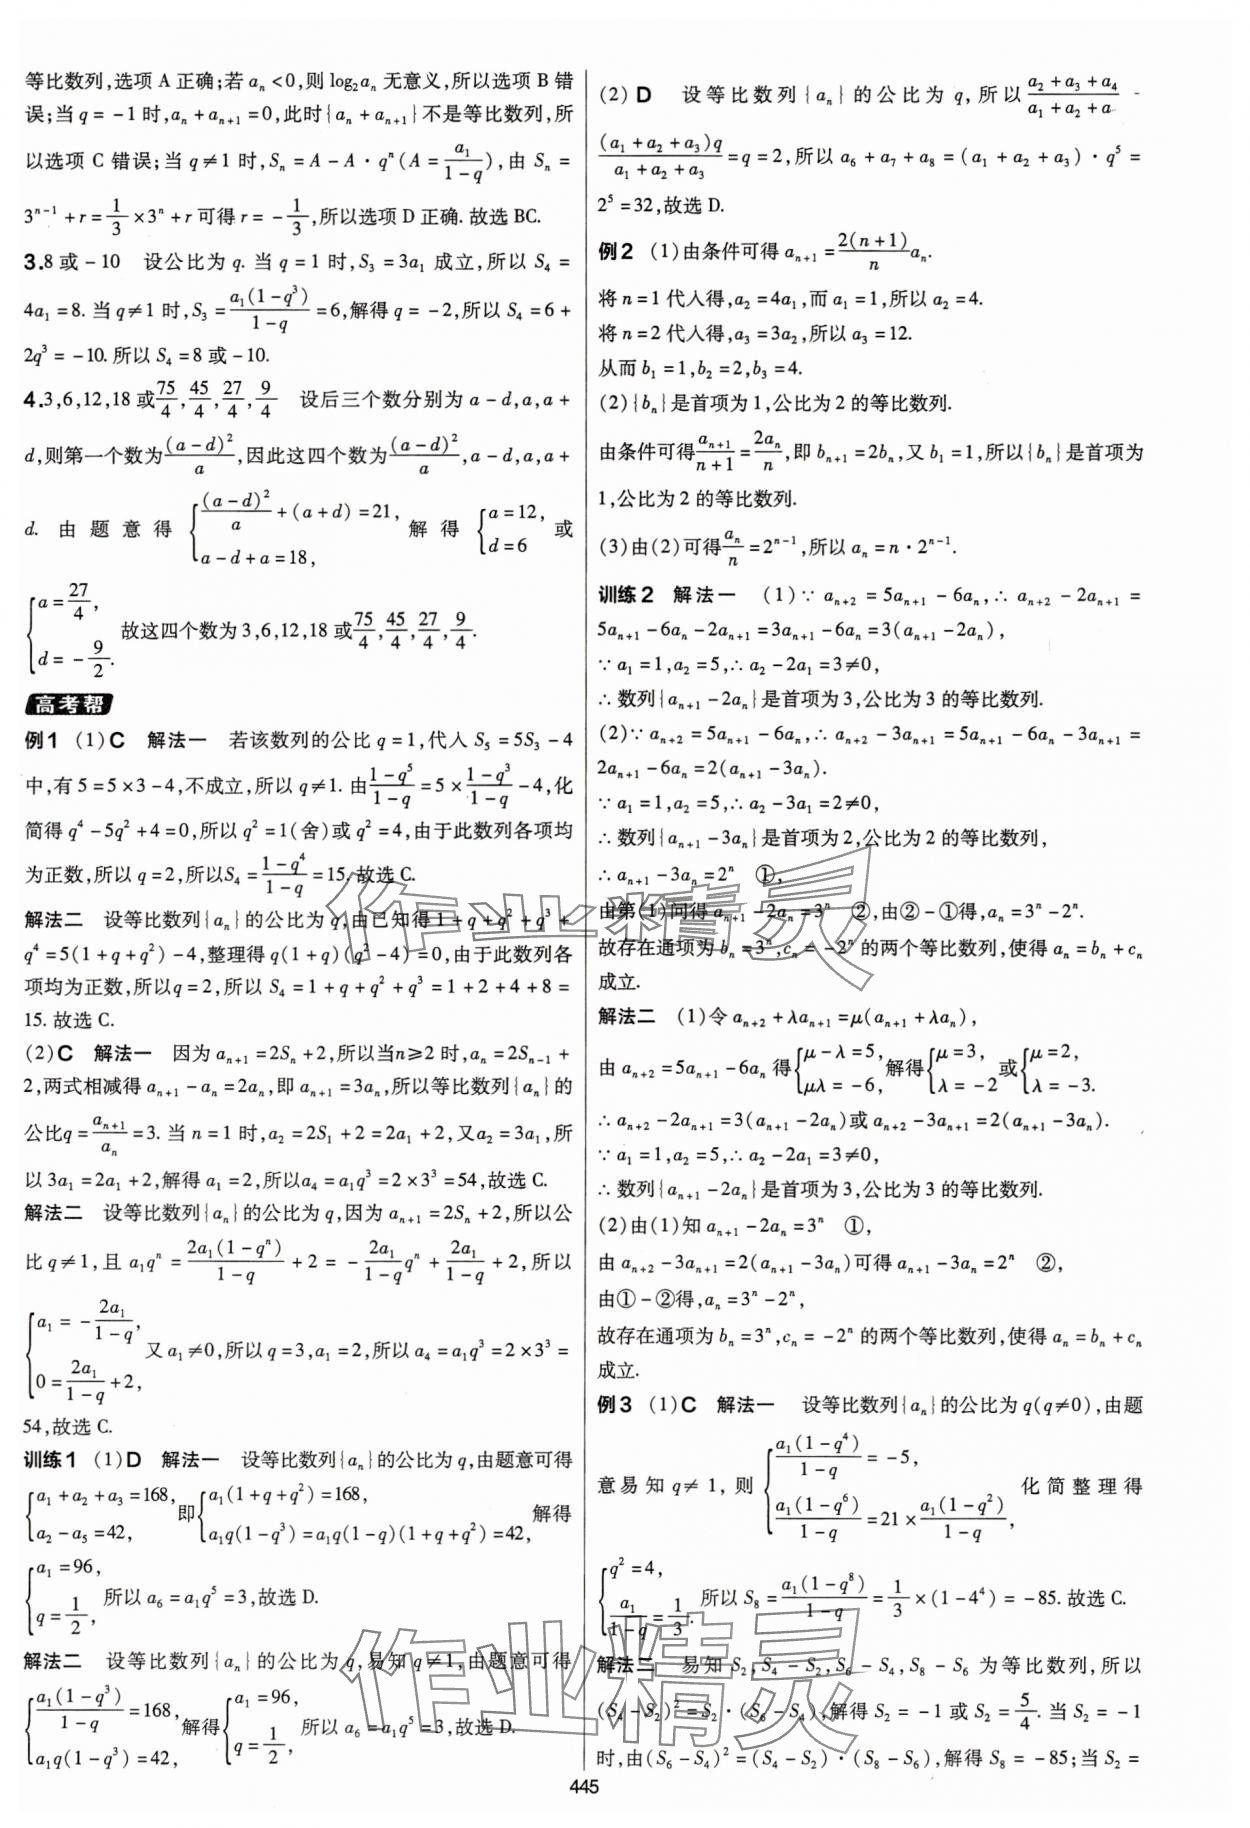 等比数列,选项 A 正确;若 aₙ<0,则 log₂aₙ 无意义,所以选项 B 错
误;当 q=-1 时,aₙ+aₙ₊₁=0,此时{aₙ+aₙ₊₁}不是等比数列,所
以选项 C 错误;当 q≠1 时,Sₙ=A-A·qⁿ(A=a₁/(1-q)),由 Sₙ=
3ⁿ⁻¹+r=1/3×3ⁿ+r 可得 r=-1/3,所以选项 D 正确.故选 BC.
3.8 或-10 设公比为 q.当 q=1 时,S₃=3a₁ 成立,所以 S₄=
4a₁=8.当 q≠1 时,S₃=a₁(1-q³)/(1-q)=6,解得 q=-2,所以 S₄=6+
2q³=-10.所以 S₄=8 或-10.
4.3,6,12,18 或75/4,45/4,27/4,9/4 设后三个数分别为 a-d,a,a+
d,则第一个数为(a-d)²/a,因此这四个数为(a-d)²/a,a-d,a,a+
d.由题意得{(a-d)²/a+(a+d)=21, a-d+a=18, 解得{a=12, d=6 或
{a=27/4, d=-9/2. 故这四个数为 3,6,12,18 或75/4,45/4,27/4,9/4.
高考帮
例1 (1)C 解法一 若该数列的公比 q=1,代入 S₅=5S₃-4
中,有 5=5×3-4,不成立,所以 q≠1.由(1-q⁵)/(1-q)=5×(1-q³)/(1-q)-4,化
简得 q⁴-5q²+4=0,所以 q²=1(舍)或 q²=4,由于此数列各项均
为正数,所以 q=2,所以S₄=(1-q⁴)/(1-q)=15.故选 C.
解法二 设等比数列{aₙ}的公比为 q,由已知得 1+q+q²+q³+
q⁴=5(1+q+q²)-4,整理得 q(1+q)(q²-4)=0,由于此数列各
项均为正数,所以q=2,所以 S₄=1+q+q²+q³=1+2+4+8=
15.故选 C.
(2)C 解法一 因为 aₙ₊₁=2Sₙ+2,所以当n≥2 时,aₙ=2Sₙ₋₁+
2,两式相减得 aₙ₊₁-aₙ=2aₙ,即 aₙ₊₁=3aₙ,所以等比数列{aₙ}的
公比q=aₙ₊₁/aₙ=3.当 n=1 时,a₂=2S₁+2=2a₁+2,又a₂=3a₁,所
以 3a₁=2a₁+2,解得 a₁=2,所以a₄=a₁q³=2×3³=54,故选 C.
解法二 设等比数列{aₙ}的公比为 q,因为 aₙ₊₁=2Sₙ+2,所以公
比 q≠1,且 a₁qⁿ=2a₁(1-qⁿ)/(1-q)+2=-2a₁/(1-q)qⁿ+2a₁/(1-q)+2,所以
{a₁=-2a₁/(1-q), 0=2a₁/(1-q)+2, 又 a₁≠0,所以 q=3,a₁=2,所以 a₄=a₁q³=2×3³=
54,故选 C.
训练1 (1)D 解法一 设等比数列{aₙ}的公比为 q,由题意可得
{a₁+a₂+a₃=168, a₂-a₅=42, 即{a₁(1+q+q²)=168, a₁q(1-q³)=a₁q(1-q)(1+q+q²)=42, 解得
{a₁=96, q=1/2, 所以 a₆=a₁q⁵=3,故选 D.
解法二 设等比数列{aₙ}的公比为 q,易知 q≠1,由题意可得
{a₁(1-q³)/(1-q)=168, a₁q(1-q³)=42, 解得{a₁=96, q=1/2, 所以 a₆=a₁q⁵=3,故选 D.
(2)D 设等比数列{aₙ}的公比为 q,所以(a₂+a₃+a₄)/(a₁+a₂+a
(a₁+a₂+a₃)q/(a₁+a₂+a₃)=q=2,所以 a₆+a₇+a₈=(a₁+a₂+a₃)·q⁵=
2⁵=32,故选 D.
例2 (1)由条件可得 aₙ₊₁=2(n+1)/n aₙ.
将 n=1 代入得,a₂=4a₁,而 a₁=1,所以 a₂=4.
将 n=2 代入得,a₃=3a₂,所以 a₃=12.
从而 b₁=1,b₂=2,b₃=4.
(2){bₙ}是首项为 1,公比为 2 的等比数列.
由条件可得aₙ₊₁/(n+1)=2aₙ/n,即 bₙ₊₁=2bₙ,又 b₁=1,所以{bₙ}是首项为
1,公比为 2 的等比数列.
(3)由(2)可得aₙ/n=2ⁿ⁻¹,所以 aₙ=n·2ⁿ⁻¹.
训练2 解法一 (1)∵aₙ₊₂=5aₙ₊₁-6aₙ,∴aₙ₊₂-2aₙ₊₁=
5aₙ₊₁-6aₙ-2aₙ₊₁=3aₙ₊₁-6aₙ=3(aₙ₊₁-2aₙ),
∵a₁=1,a₂=5,∴a₂-2a₁=3≠0,
∴数列{aₙ₊₁-2aₙ}是首项为 3,公比为 3 的等比数列.
(2)∵aₙ₊₂=5aₙ₊₁-6aₙ,∴aₙ₊₂-3aₙ₊₁=5aₙ₊₁-6aₙ-3aₙ₊₁=
2aₙ₊₁-6aₙ=2(aₙ₊₁-3aₙ).
∵a₁=1,a₂=5,∴a₂-3a₁=2≠0,
∴数列{aₙ₊₁-3aₙ}是首项为 2,公比为 2 的等比数列,
∴aₙ₊₁-3aₙ=2ⁿ ①,
由第(1)问得 aₙ₊₁-2aₙ=3ⁿ ②,由②-①得,aₙ=3ⁿ-2ⁿ.
故存在通项为 bₙ=3ⁿ,cₙ=-2ⁿ 的两个等比数列,使得 aₙ=bₙ+cₙ
成立.
解法二 (1)令 aₙ₊₂+λaₙ₊₁=μ(aₙ₊₁+λaₙ),
由 aₙ₊₂=5aₙ₊₁-6aₙ 得{μ-λ=5, μλ=-6, 解得{μ=3, λ=-2 或{μ=2, λ=-3.
∴aₙ₊₂-2aₙ₊₁=3(aₙ₊₁-2aₙ)或 aₙ₊₂-3aₙ₊₁=2(aₙ₊₁-3aₙ).
∵a₁=1,a₂=5,∴a₂-2a₁=3≠0,
∴数列{aₙ₊₁-2aₙ}是首项为 3,公比为 3 的等比数列.
(2)由(1)知 aₙ₊₁-2aₙ=3ⁿ ①,
由 aₙ₊₂-3aₙ₊₁=2(aₙ₊₁-3aₙ)可得 aₙ₊₁-3aₙ=2ⁿ ②,
由①-②得,aₙ=3ⁿ-2ⁿ,
故存在通项为 bₙ=3ⁿ,cₙ=-2ⁿ 的两个等比数列,使得 aₙ=bₙ+cₙ
成立.
例3 (1)C 解法一 设等比数列{aₙ}的公比为 q(q≠0),由题
意易知 q≠1,则{a₁(1-q⁴)/(1-q)=-5, a₁(1-q⁶)/(1-q)=21×a₁(1-q²)/(1-q), 化简整理得
{q²=4, a₁/(1-q)=1/3. 所以 S₈=a₁(1-q⁸)/(1-q)=1/3×(1-4⁴)=-85.故选 C.
解法二 易知 S₂,S₄-S₂,S₆-S₄,S₈-S₆ 为等比数列,所以
(S₄-S₂)²=S₂·(S₆-S₄),解得 S₂=-1 或 S₂=5/4.当 S₂=-1
时,由(S₆-S₄)²=(S₄-S₂)·(S₈-S₆),解得 S₈=-85;当 S₂=
445
作业精灵
作业精灵